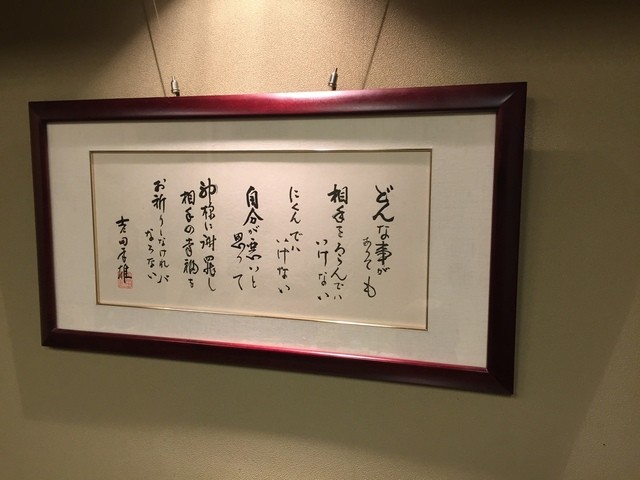 どんな事が
あっても
相手をうらんでは
いけない
にくんでは
いけない
自分が悪いと
思って
神様に謝罪し
相手の幸福を
お祈りしなければ
ならない
吉田